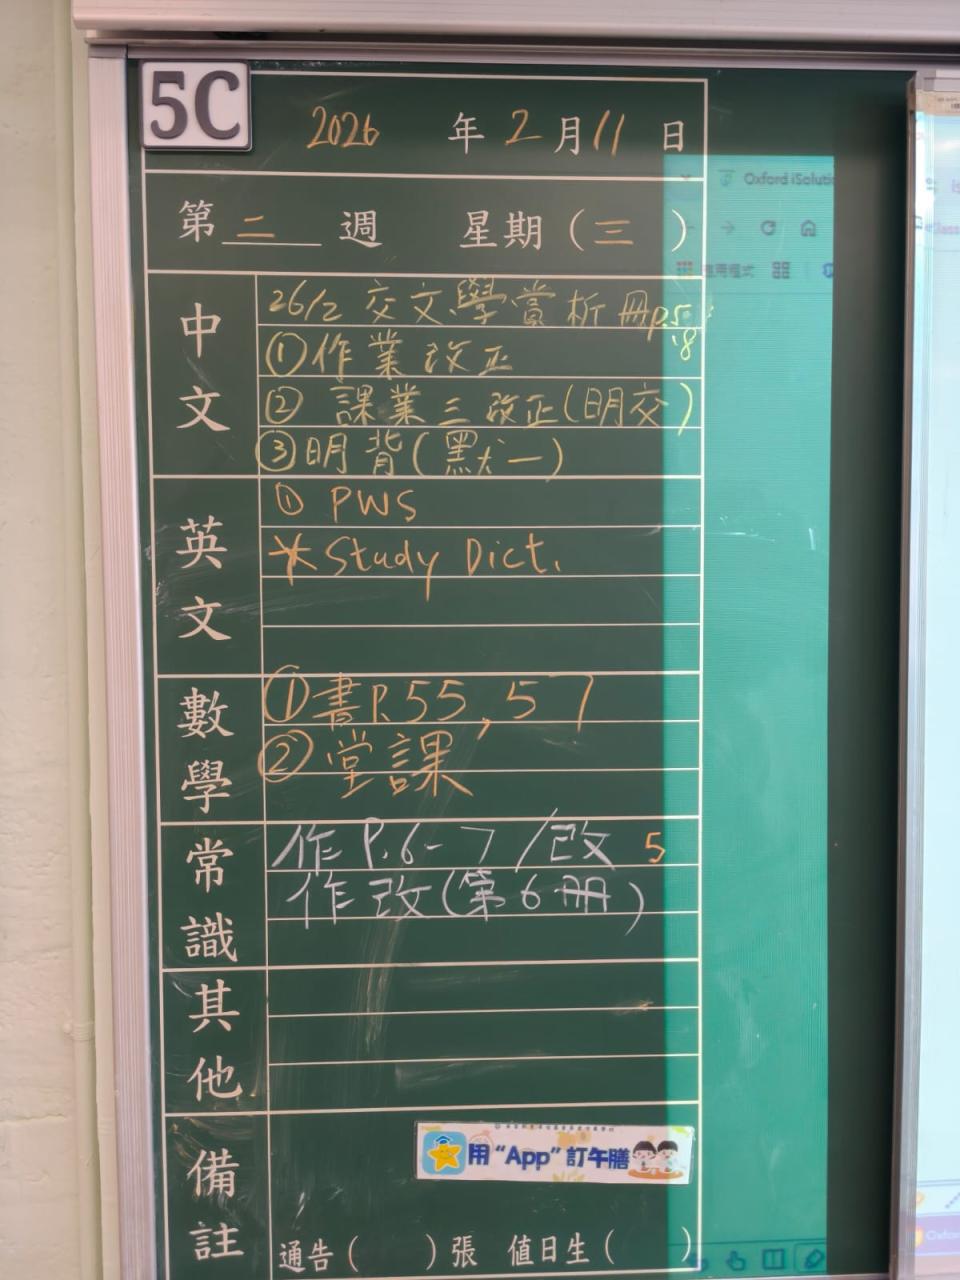 5C
2026 年 2 月 11 日
第 二 週 星期 ( 三 )
中文
26/2 交文學賞析冊 P.5
8
① 作業改正
② 課業三改正(明交)
③ 明背(默一)
英文
① PWS
* Study Dict.
數學
① 書P.55, 57
② 堂課
常識
作 P.6-7 / 改 5
作改(第6冊)
其他
備註
用“App”訂午膳
通告( )張 值日生( )
Oxford iSolution
應用程式